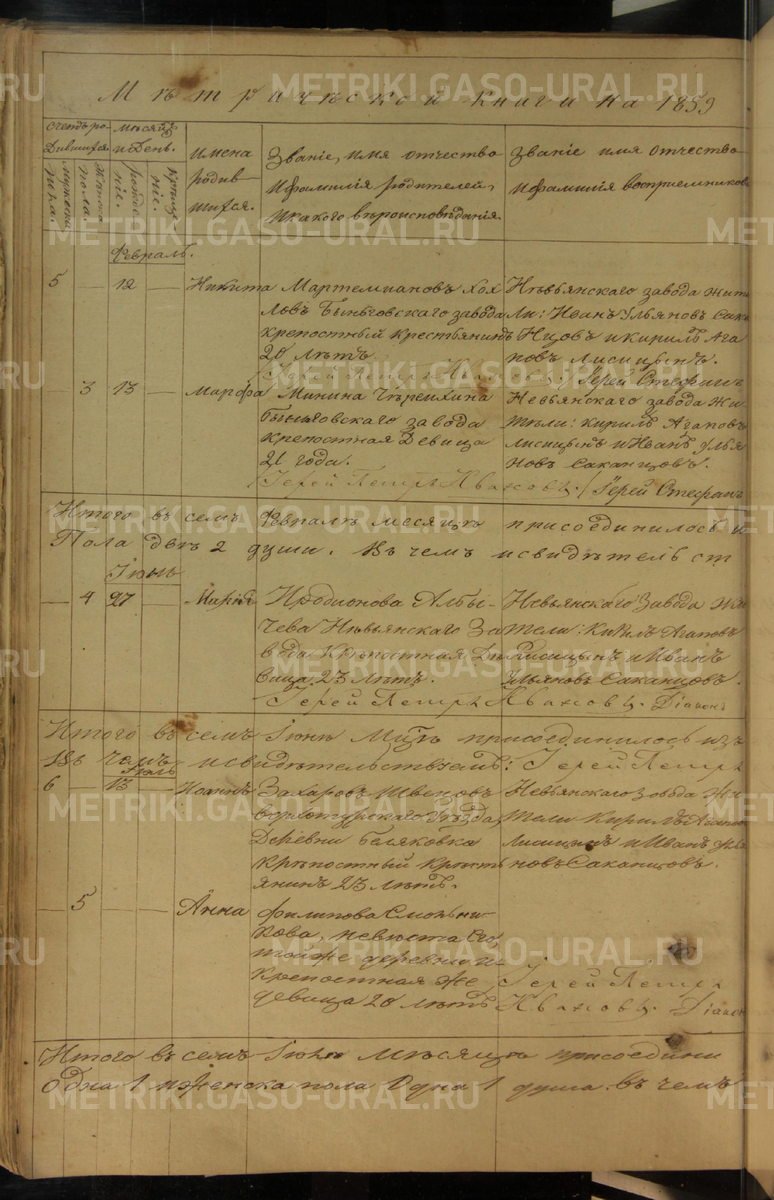 Мѣтрическої книги на 1859
Счетъ родившихся.
мужеска пола.
женска пола.
мѣсяцъ и День.
рождение.
креще ніе.
имена родившихся.
Званіе, имя отчество и фамилія родителей, и какого вѣроисповѣданія
Званіе имя отчество и фамилія восприемниковъ
Февраль.
5 — 12 — Никита Мартемиановъ Хох
ловъ Быньговскаго завода
крепостный крестьянинъ
20 лѣтъ
Нѣвьянскаго завода жите
ли: Иванъ Ульяновъ Сака
нцовъ и кирилъ Ага
повъ Лисицынъ.
Іерей Петръ Ивановъ / Іерей Стефанъ
— 3 13 — Марфа Минина Черепхина
Быньговскаго завода
Крепостная Девица
21 года.
Невьянскаго завода жи
тели: кирилъ Агаповъ
лисицынъ и Иванъ улья
новъ Саканцовъ.
/ Іерей Петръ Ивановъ. / Іерей Стефанъ
Итого въ семъ Февралѣ месяцѣ присоединилось и
Пола двѣ 2 души. Въ чемъ и свидѣтельст
Іюнь
— 4 27 — Марія Иродионова Албы-
чева Нѣвьянскаго За
вода Крѣпостная Дѣ
вица 23 лѣтъ.
Невьянскаго Завода жи
тели: Кирилъ Агаповъ
Лисицынъ и Иванъ
Ульяновъ Саканцовъ.
Іерей Петръ Ивановъ. Діаконъ
Итого въ семъ Іюнѣ Мцѣ присоединилось изъ
Въ чемъ и свидѣтельствуемъ: Іерей Петръ
Іюль
6 — 13 — Иоаннъ Захаровъ Швецовъ
верхотурскаго Уѣзда,
Деревни Беляковка
крѣпостный крѣсть
янинъ 23 лѣтъ.
Невьянскаго Зовода Жи
тели Кирилъ Агапов
Лисицынъ и Иванъ Улья
новъ Саканцовъ.
— 5 — — Анна филипова Смольни-
кова, невѣста Его
той же деревни и
крепостная же
девица 20 лѣтъ
Іерей Петръ
Ивановъ. Діаконъ
Итого въ семъ Іюлѣ мѣсяцѣ присоедини
одна 1 и женска пола Одна 1 душа. въ чемъ
METRIKI.GASO-URAL.RU